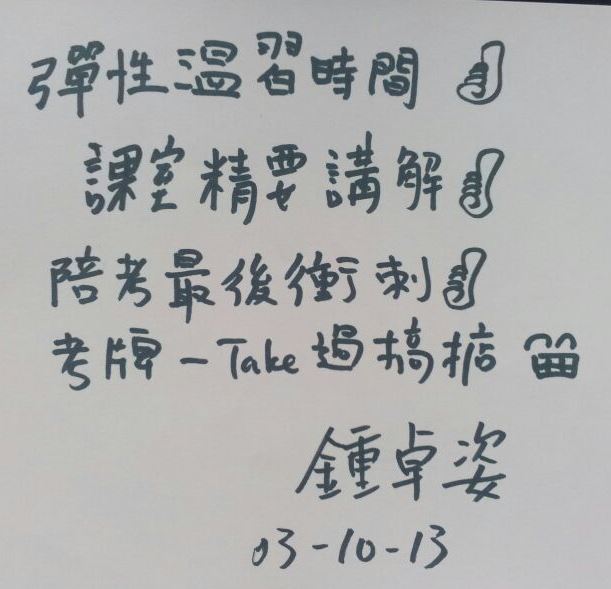 彈性溫習時間
課室精要講解
陪考最後衝刺
考牌一Take過搞掂
鍾卓姿
03-10-13